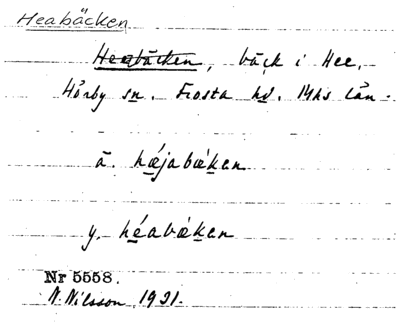 Heabäcken
Heabäcken, bäck i Hee,
Hörby sn. Frosta hd. Mhs län.
ä. hǽjabæken
y. héabæken
Nr 5558.
N. Nilsson 1921.